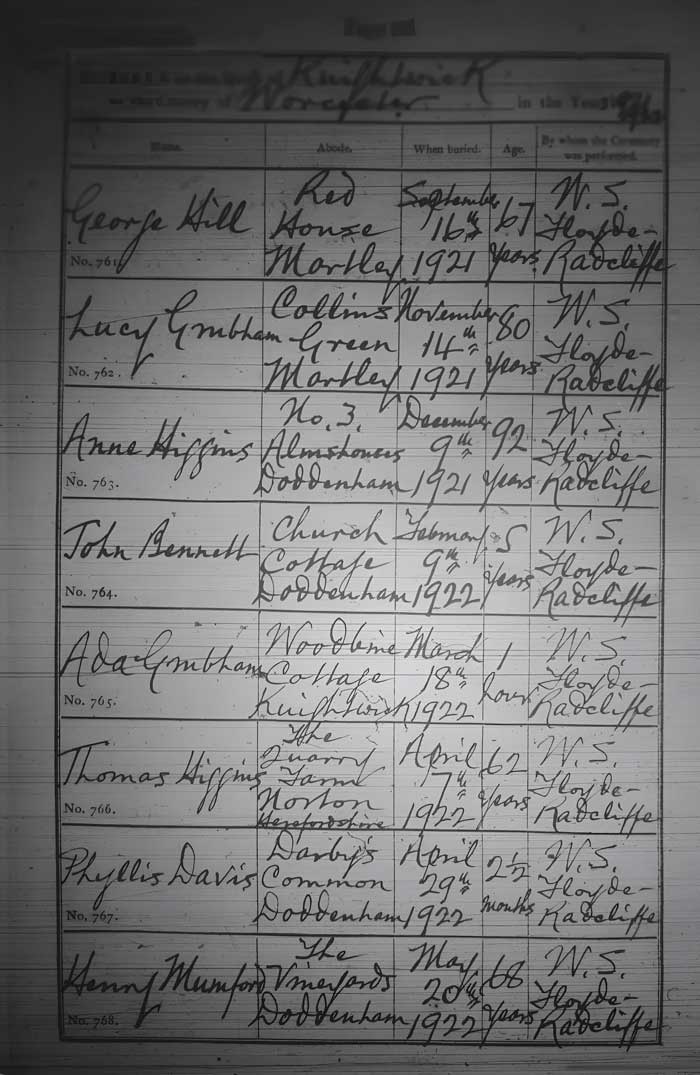 Knightwick
Worcester in the Year
Name. Abode. When buried. Age. By whom the Ceremony was performed.
George Hill
No. 761.
Red
House
Martley
September
16th
1921
67
years
W. S.
Floyde-
Radcliffe
Lucy Grubham
No. 762.
Collins
Green
Martley
November
14th
1921
80
years
W. S.
Floyde-
Radcliffe
Anne Higgins
No. 763.
No. 3.
Almshouses
Doddenham
December
9th
1921
92
years
W. S.
Floyde-
Radcliffe
John Bennett
No. 764.
Church
Cottage
Doddenham
February
9th
1922
5
years
W. S.
Floyde-
Radcliffe
Ada Grubham
No. 765.
Woodbine
Cottage
Knightwick
March
18th
1922
1
hour
W. S.
Floyde-
Radcliffe
Thomas Higgins
No. 766.
The
Quarry
Farm
Norton
Herefordshire
April
7th
1922
62
years
W. S.
Floyde-
Radcliffe
Phyllis Davis
No. 767.
Darby's
Common
Doddenham
April
29th
1922
2½
months
W. S.
Floyde-
Radcliffe
Henry Mumford
No. 768.
The
Vineyards
Doddenham
May
20th
1922
68
years
W. S.
Floyde-
Radcliffe